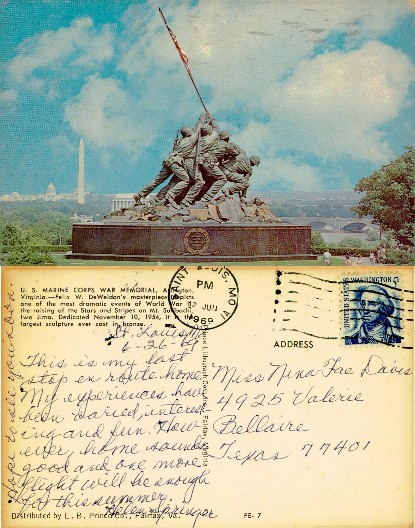 U. S. MARINE CORPS WAR MEMORIAL, Arlington,
Virginia.—Felix W. DeWeldon's masterpiece depicts
one of the most dramatic events of World War
the raising of the Stars and Stripes on Mt. Suribachi,
Iwo Jima. Dedicated November 10, 1954, it is the
largest sculpture ever cast in bronze.
SAINT LOUIS, MO
PM
JUN
1969
UNITED STATES
WASHINGTON
5¢
ADDRESS
St. Louis
6-26-69
This is my last
stop en route home.
My experiences have
been varied, interest-
ing and fun. How-
ever, home sounds
good and one more
flight will be enough
for this summer.
Helen Springer
Hope to see you soon.
Miss Nina Fae Davis
4925 Valerie
Bellaire
Texas 77401
Distributed by L. B. Prince Co., Fairfax, Va.
PE-7